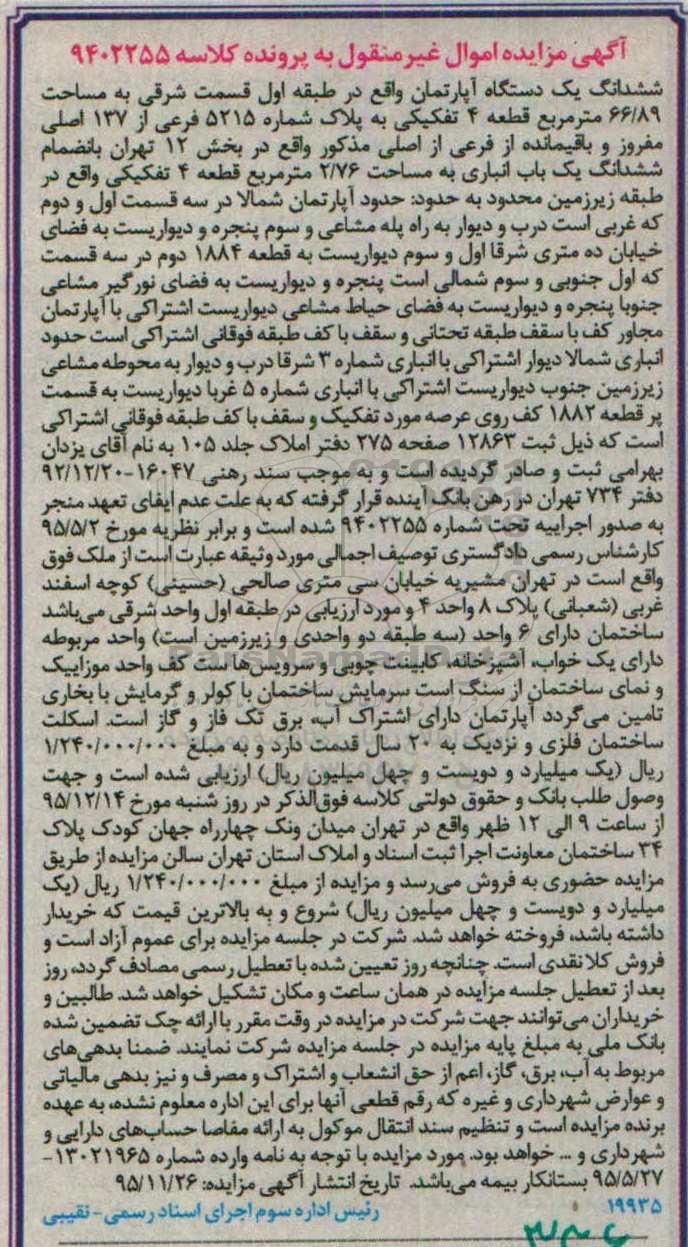 آگهی مزایده اموال غیرمنقول به پرونده کلاسه ۹۴۰۲۲۵۵
ششدانگ یک دستگاه آپارتمان واقع در طبقه اول قسمت شرقی به مساحت
۶۶/۸۹ مترمربع قطعه ۴ تفکیکی به پلاک شماره ۵۲۱۵ فرعی از ۱۳۷ اصلی
مفروز و باقیمانده از فرعی از اصلی مذکور واقع در بخش ۱۲ تهران بانضمام
ششدانگ یک باب انباری به مساحت ۲/۷۶ مترمربع قطعه ۴ تفکیکی واقع در
طبقه زیرزمین محدود به حدود: حدود آپارتمان شمالا در سه قسمت اول و دوم
که غربی است درب و دیوار به راه پله مشاعی و سوم پنجره و دیواریست به فضای
خیابان ده متری شرقا اول و سوم دیواریست به قطعه ۱۸۸۴ دوم در سه قسمت
که اول جنوبی و سوم شمالی است پنجره و دیواریست به فضای نورگیر مشاعی
جنوبا پنجره و دیواریست به فضای حیاط مشاعی دیواریست اشتراکی با آپارتمان
مجاور کف با سقف طبقه تحتانی و سقف با کف طبقه فوقانی اشتراکی است حدود
انباری شمالا دیوار اشتراکی با انباری شماره ۳ شرقا درب و دیوار به محوطه مشاعی
زیرزمین جنوب دیواریست اشتراکی با انباری شماره ۵ غربا دیواریست به قسمت
پر قطعه ۱۸۸۲ کف روی عرصه مورد تفکیک و سقف با کف طبقه فوقانی اشتراکی
است که ذیل ثبت ۱۲۸۶۳ صفحه ۲۷۵ دفتر املاک جلد ۱۰۵ به نام آقای یزدان
بهرامی ثبت و صادر گردیده است و به موجب سند رهنی ۱۶۰۴۷-۹۲/۱۲/۲۰
دفتر ۷۳۴ تهران در رهن بانک آینده قرار گرفته که به علت عدم ایفای تعهد منجر
به صدور اجراییه تحت شماره ۹۴۰۲۲۵۵ شده است و برابر نظریه مورخ ۹۵/۵/۲
کارشناس رسمی دادگستری توصیف اجمالی مورد وثیقه عبارت است از ملک فوق
واقع است در تهران مشیریه خیابان سی متری صالحی (حسینی) کوچه اسفند
غربی (شعبانی) پلاک ۸ واحد ۴ و مورد ارزیابی در طبقه اول واحد شرقی می‌باشد
ساختمان دارای ۶ واحد (سه طبقه دو واحدی و زیرزمین است) واحد مربوطه
دارای یک خواب، آشپزخانه، کابینت چوبی و سرویس‌ها ست کف واحد موزاییک
و نمای ساختمان از سنگ است سرمایش ساختمان با کولر و گرمایش با بخاری
تامین می‌گردد آپارتمان دارای اشتراک آب، برق تک فاز و گاز است. اسکلت
ساختمان فلزی و نزدیک به ۲۰ سال قدمت دارد و به مبلغ ۱/۲۴۰/۰۰۰/۰۰۰
ریال (یک میلیارد و دویست و چهل میلیون ریال) ارزیابی شده است و جهت
وصول طلب بانک و حقوق دولتی کلاسه فوق‌الذکر در روز شنبه مورخ ۹۵/۱۲/۱۴
از ساعت ۹ الی ۱۲ ظهر واقع در تهران میدان ونک چهارراه جهان کودک پلاک
۳۴ ساختمان معاونت اجرا ثبت اسناد و املاک استان تهران سالن مزایده از طریق
مزایده حضوری به فروش می‌رسد و مزایده از مبلغ ۱/۲۴۰/۰۰۰/۰۰۰ ریال (یک
میلیارد و دویست و چهل میلیون ریال) شروع و به بالاترین قیمت که خریدار
داشته باشد، فروخته خواهد شد. شرکت در جلسه مزایده برای عموم آزاد است و
فروش کلا نقدی است. چنانچه روز تعیین شده با تعطیل رسمی مصادف گردد، روز
بعد از تعطیل جلسه مزایده در همان ساعت و مکان تشکیل خواهد شد. طالبین و
خریداران می‌توانند جهت شرکت در مزایده در وقت مقرر با ارائه چک تضمین شده
بانک ملی به مبلغ پایه مزایده در جلسه مزایده شرکت نمایند. ضمنا بدهی‌های
مربوط به آب، برق، گاز، اعم از حق انشعاب و اشتراک و مصرف و نیز بدهی مالیاتی
و عوارض شهرداری و غیره که رقم قطعی آنها برای این اداره معلوم نشده، به عهده
برنده مزایده است و تنظیم سند انتقال موکول به ارائه مفاصا حساب‌های دارایی و
شهرداری و ... خواهد بود. مورد مزایده با توجه به نامه وارده شماره ۱۳۰۲۱۹۶۵-
۹۵/۵/۲۷ بستانکار بیمه می‌باشد. تاریخ انتشار آگهی مزایده: ۹۵/۱۱/۲۶
۱۹۹۳۵ رئیس اداره سوم اجرای اسناد رسمی- نقیبی